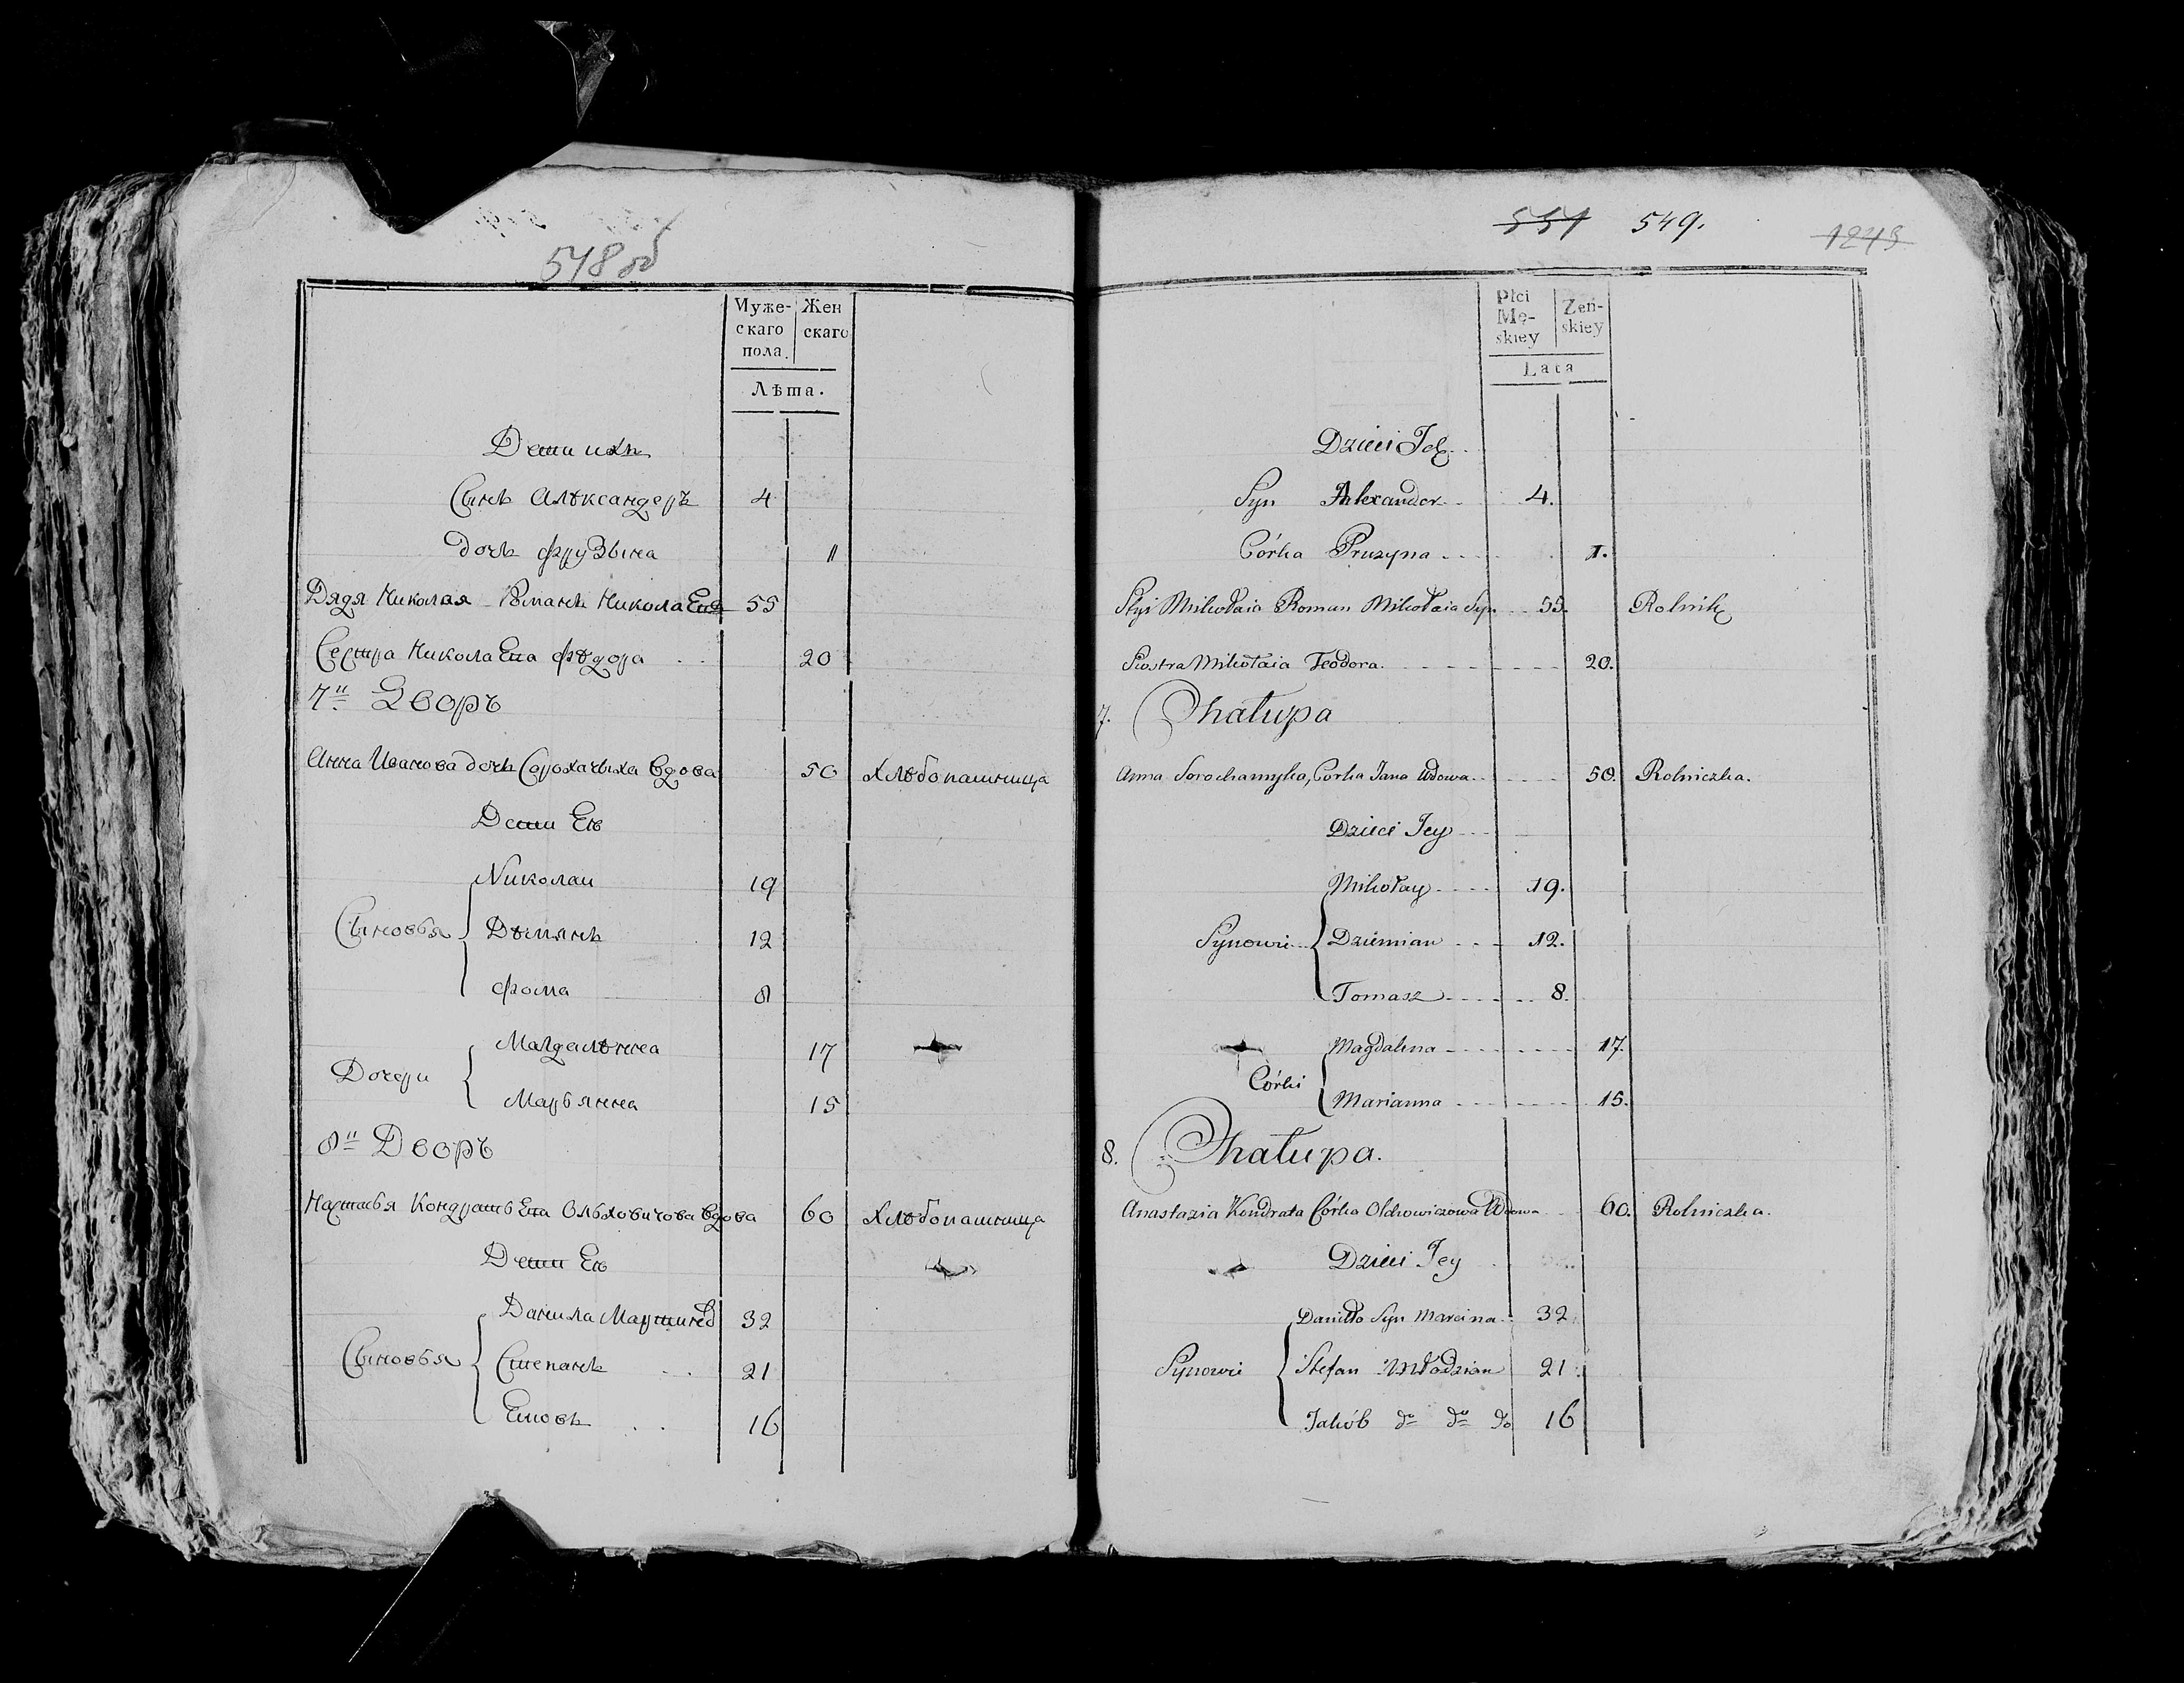 548 об
Мужескаго пола.
Женскаго
Лѣта.
Дети ихъ
Сынъ Александеръ 4
дочь Фрузына 1
Дядя Николая Романъ Николаевъ 55
Сестра Николаева Фѣдора 20
7й Дворъ
Анна Иванова дочь Сорохачыха вдова 50 Хлѣбопашница
Дети Ею
Николаи 19
Сыновья Дѣмянъ 12
Фома 8
Магдалѣнна 17
Дочери
Марьянна 15
8й Дворъ
Настасья Кондратьева Ольховичова вдова 60 Хлѣбопашница
Дети Ею
Данила Мартинов 32
Сыновья Степанъ 21
Яковъ 16
551 549.
1243
Płci Mę-
skiey
Zeń-
skiey
Lata
Dzieci Ich
Syn Alexander 4.
Córka Pruzyna 1.
Stryi Mikołaia Roman Mikołaia Syn 55. Rolnik
Siostra Mikołaia Teodora. 20.
7. Chałupa
Anna Sorochamyka, Corka Jana Wdowa 50. Rolniczka.
Dzieci Jey
Mikołay 19.
Synowie Dziemian 12.
Tomasz 8.
Magdalena 17.
Córki
Marianna 15.
8. Chałupa.
Anastazia Kondrata Córka Olchowiczowa Wdowa 60. Rolniczka.
Dzieci Jey
Daniło Syn Marcina 32
Synowie Stefan Młodzian 21
Jakób do do do 16